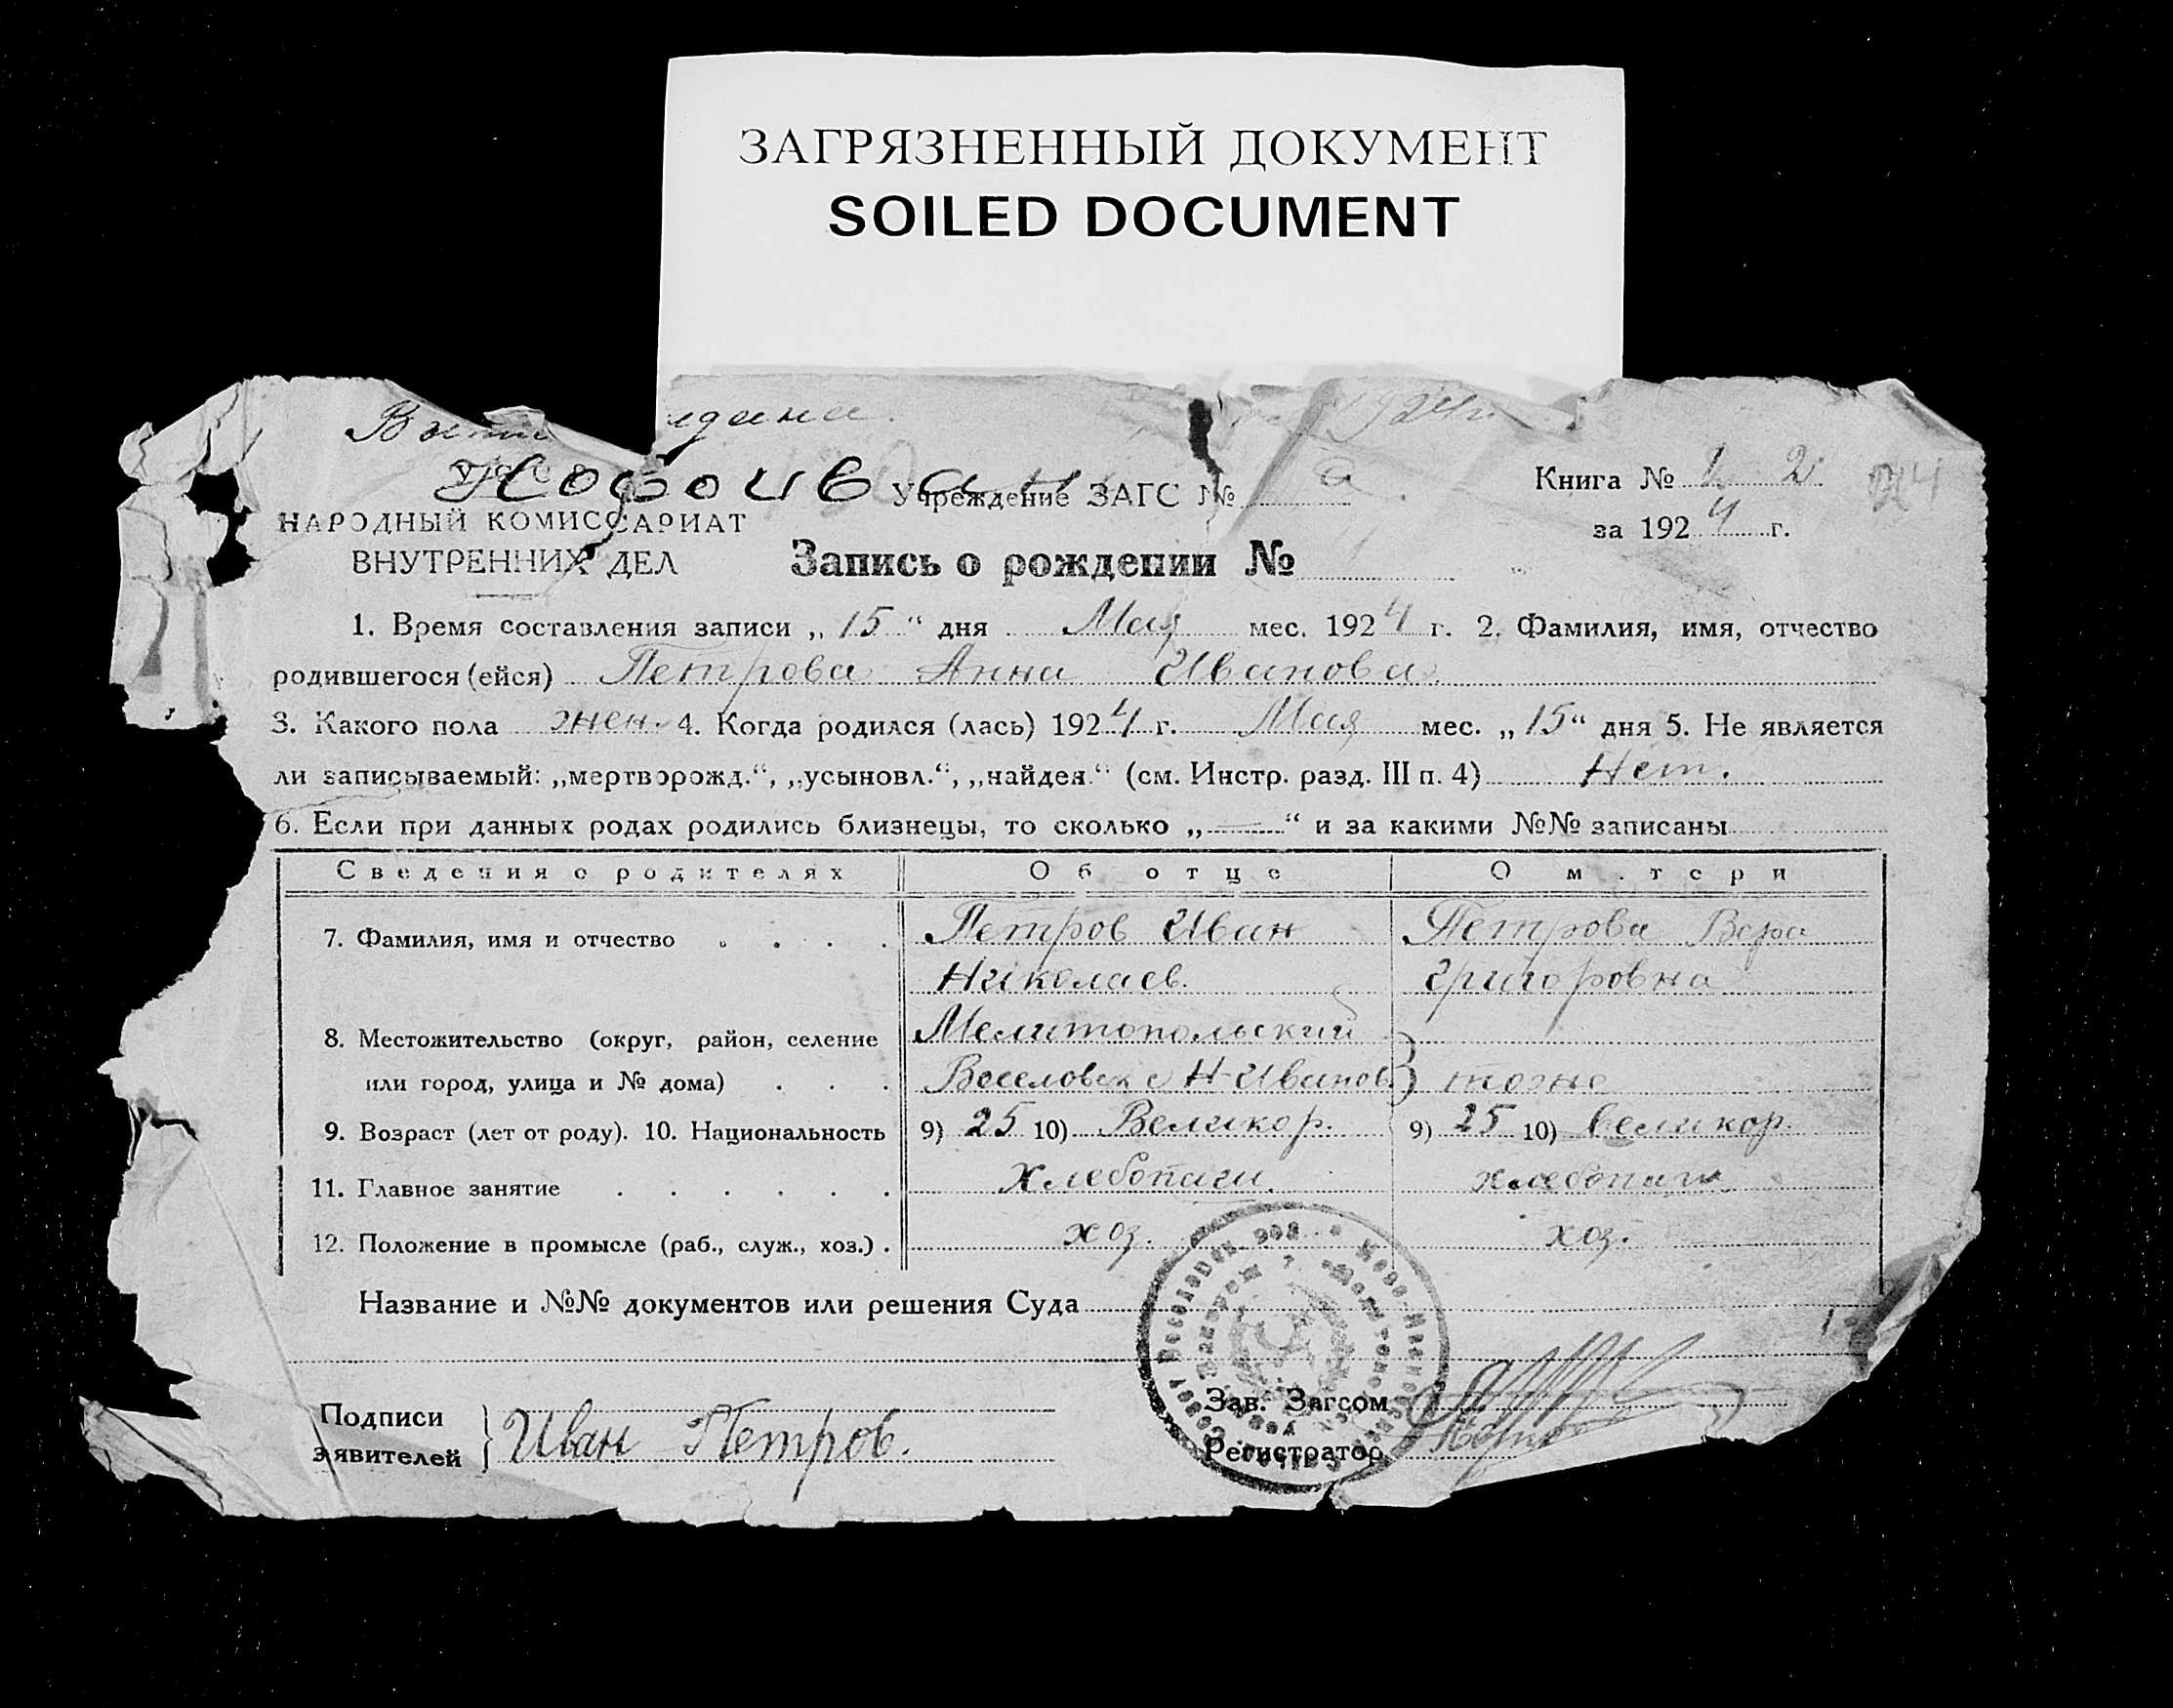 ЗАГРЯЗНЕННЫЙ ДОКУМЕНТ
SOILED DOCUMENT
1924г
У.С.С.Р.
Учреждение ЗАГС №
Книга № 1 2
НАРОДНЫЙ КОМИССАРИАТ
за 1924 г.
ВНУТРЕННИХ ДЕЛ
Запись о рождении №
1. Время составления записи „15“ дня Мая мес. 1924 г. 2. Фамилия, имя, отчество
родившегося (ейся) Петрова Анна Иванова
3. Какого пола жен. 4. Когда родился (лась) 1924 г. Мая мес. „15“ дня 5. Не является
ли записываемый: „мертворожд.“, „усыновл.“, „найден.“ (см. Инстр. разд. III п. 4) Нет.
6. Если при данных родах родились близнецы, то сколько „—“ и за какими №№ записаны
Сведения о родителях Об отце О м.тери
7. Фамилия, имя и отчество . . . . Петров Иван Петрова Вера
Николаев. Григоровна
8. Местожительство (округ, район, селение Мелитопольский
или город, улица и № дома) . . . Веселовск с Н-Иванов. } тоже
9. Возраст (лет от роду). 10. Национальность 9) 25 10) Великор. 9) 25 10) Великор.
11. Главное занятие . . . . . . Хлебопаши. хлебопаши
12. Положение в промысле (раб., служ., хоз.) . хоз. хоз.
Название и №№ документов или решения Суда
Подписи Зав. Загсом
заявителей } Иван Петров. Регистратор